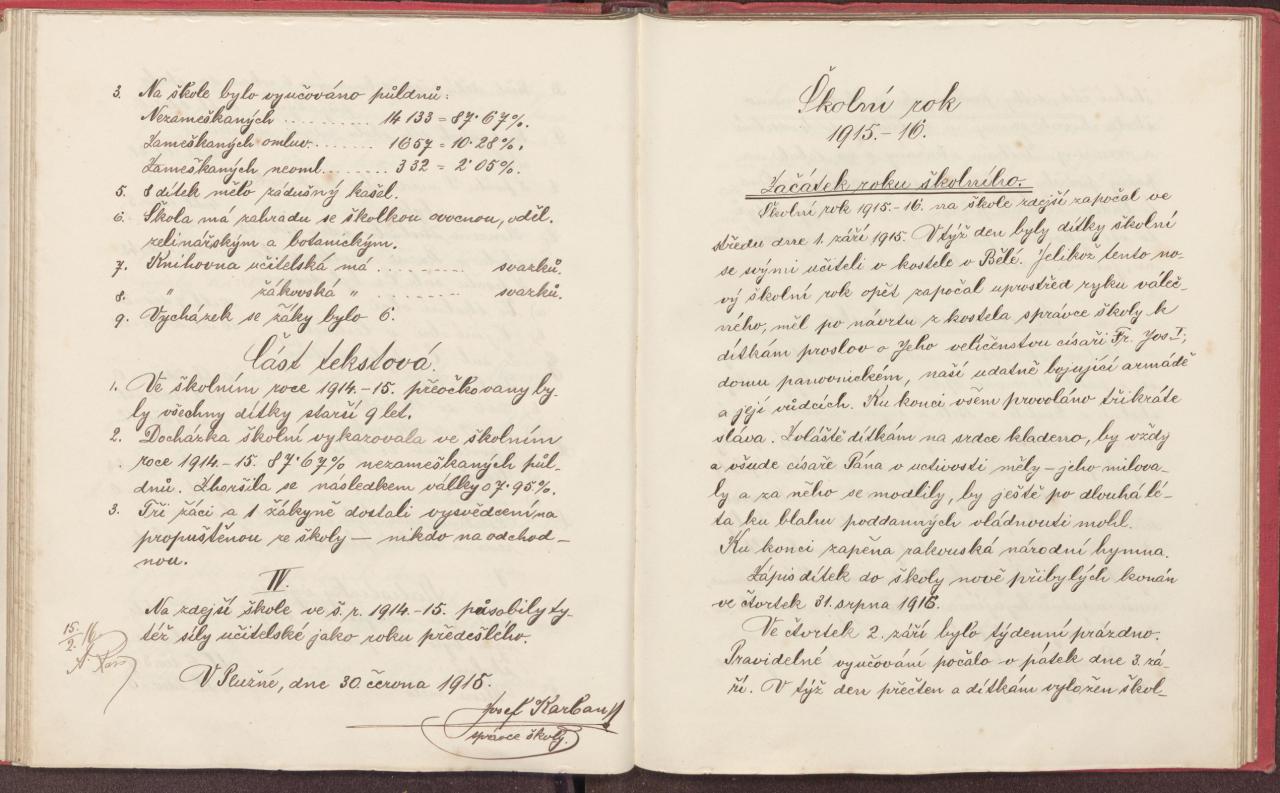 3. Na škole bylo vyučováno půldnů:
Nezameškaných .......... 14 133 = 87·67%.
Zameškaných omluv. ....... 1657 = 10·28%.
Zameškaných neoml. ....... 332 = 2·05%.
5. 8 dítek mělo zádušný kašel.
6. Škola má zahradu se školkou ovocnou, oděl.
zelinářským a botanickým.
7. Knihovna učitelská má .......... svazků.
8. " žákovská " .......... svazků.
9. Vycházek se žáky bylo 6.
Část tekstová.
1. Ve školním roce 1914.-15. přeočkovany by-
ly všechny dítky starší 9 let.
2. Docházka školní vykazovala ve školním
roce 1914.-15. 87·67% nezameškaných půl-
dnů. Zhoršila se následkem války o 7·95%.
3. Tři žáci a 1 žákyně dostali vysvědcení na
propuštěnou ze školy — nikdo na odchod-
nou.
IV.
Na zdejší škole ve š. r. 1914.-15. působily ty-
též síly učitelské jako roku předešlého.
15/2. 16
V Pluzné, dne 30. června 1915.
Josef Karban
správce školy.
Školní rok
1915.-16.
Začátek roku školního.
Školní rok 1915.-16. na škole zdejší započal ve
středu dne 1. září 1915. V týž den byly dítky školní
se svými učiteli v kostele v Bělé. Jelikož tento no-
vý školní rok opět započal uprostřed ryku váleč-
ného, měl po návrtu z kostela správce školy k
dítkám proslov o Jeho veličenstvu císaři Fr. Jos. I;
domu panovnickém, naší udatně bojující armádě
a její vůdcích. Ku konci všem provoláno třikráte
sláva. Zvláště dítkám na srdce kladeno, by vždy
a všude císaře Pána v uctivosti měly — jeho milova-
ly a za něho se modlily, by ještě po dlouhá lé-
ta ku blahu poddanných vládnouti mohl.
Ku konci zapěna rakouská národní hymna.
Zápis dítek do školy nově přibylých konán
ve čtvrtek 31. srpna 1915.
Ve čtvrtek 2. září bylo týdenní prázdno.
Pravidelné vyučování počalo v pátek dne 3. zá-
ří. V týž den přečten a dítkám vyložen škol-